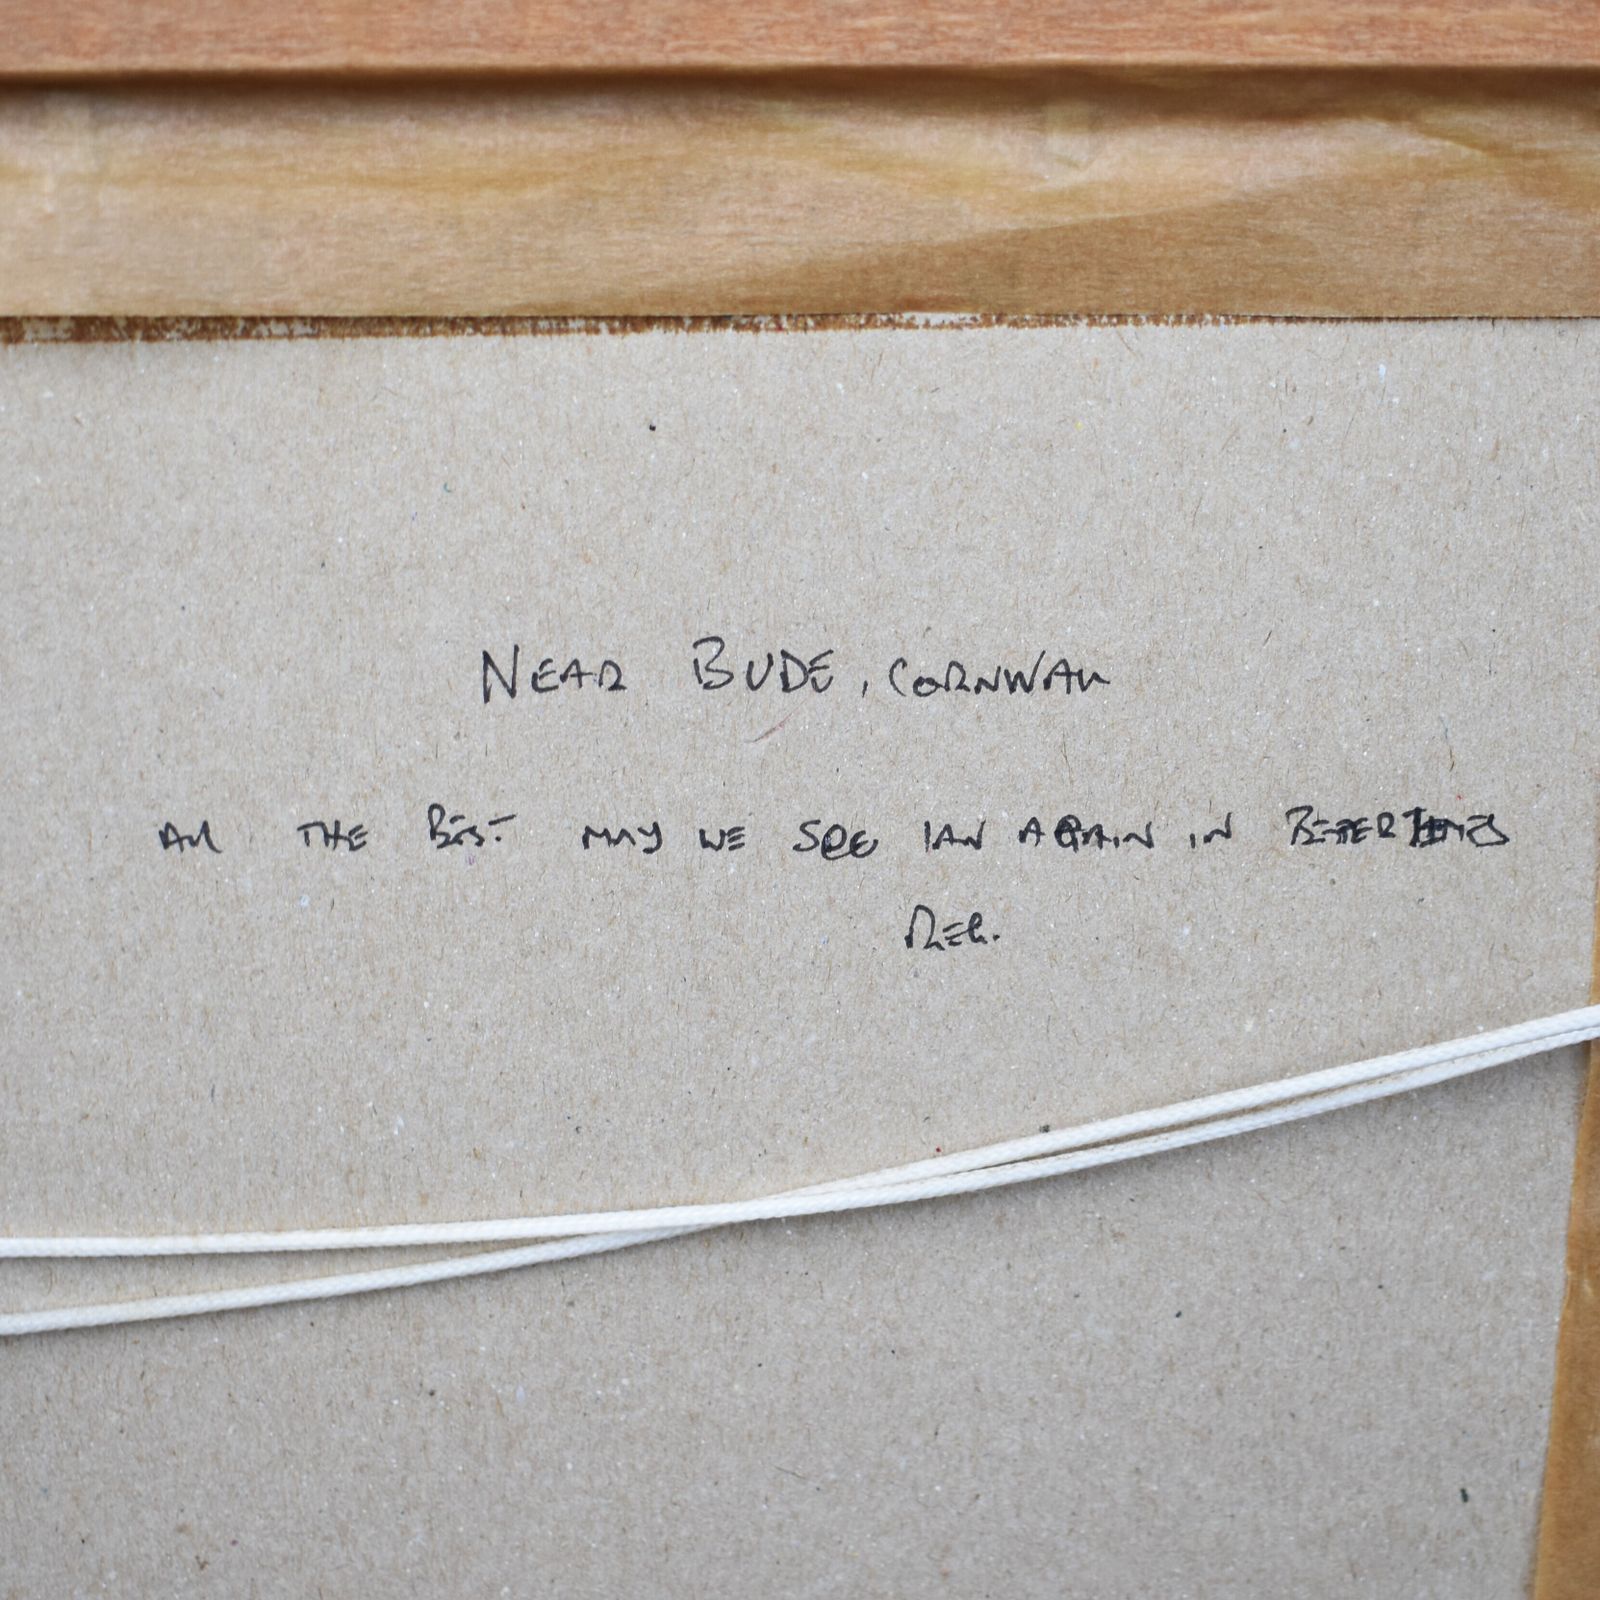 NEAR BUDE, CORNWALL
ALL THE BEST. MAY WE SEE IAN AGAIN IN BETTER TIMES